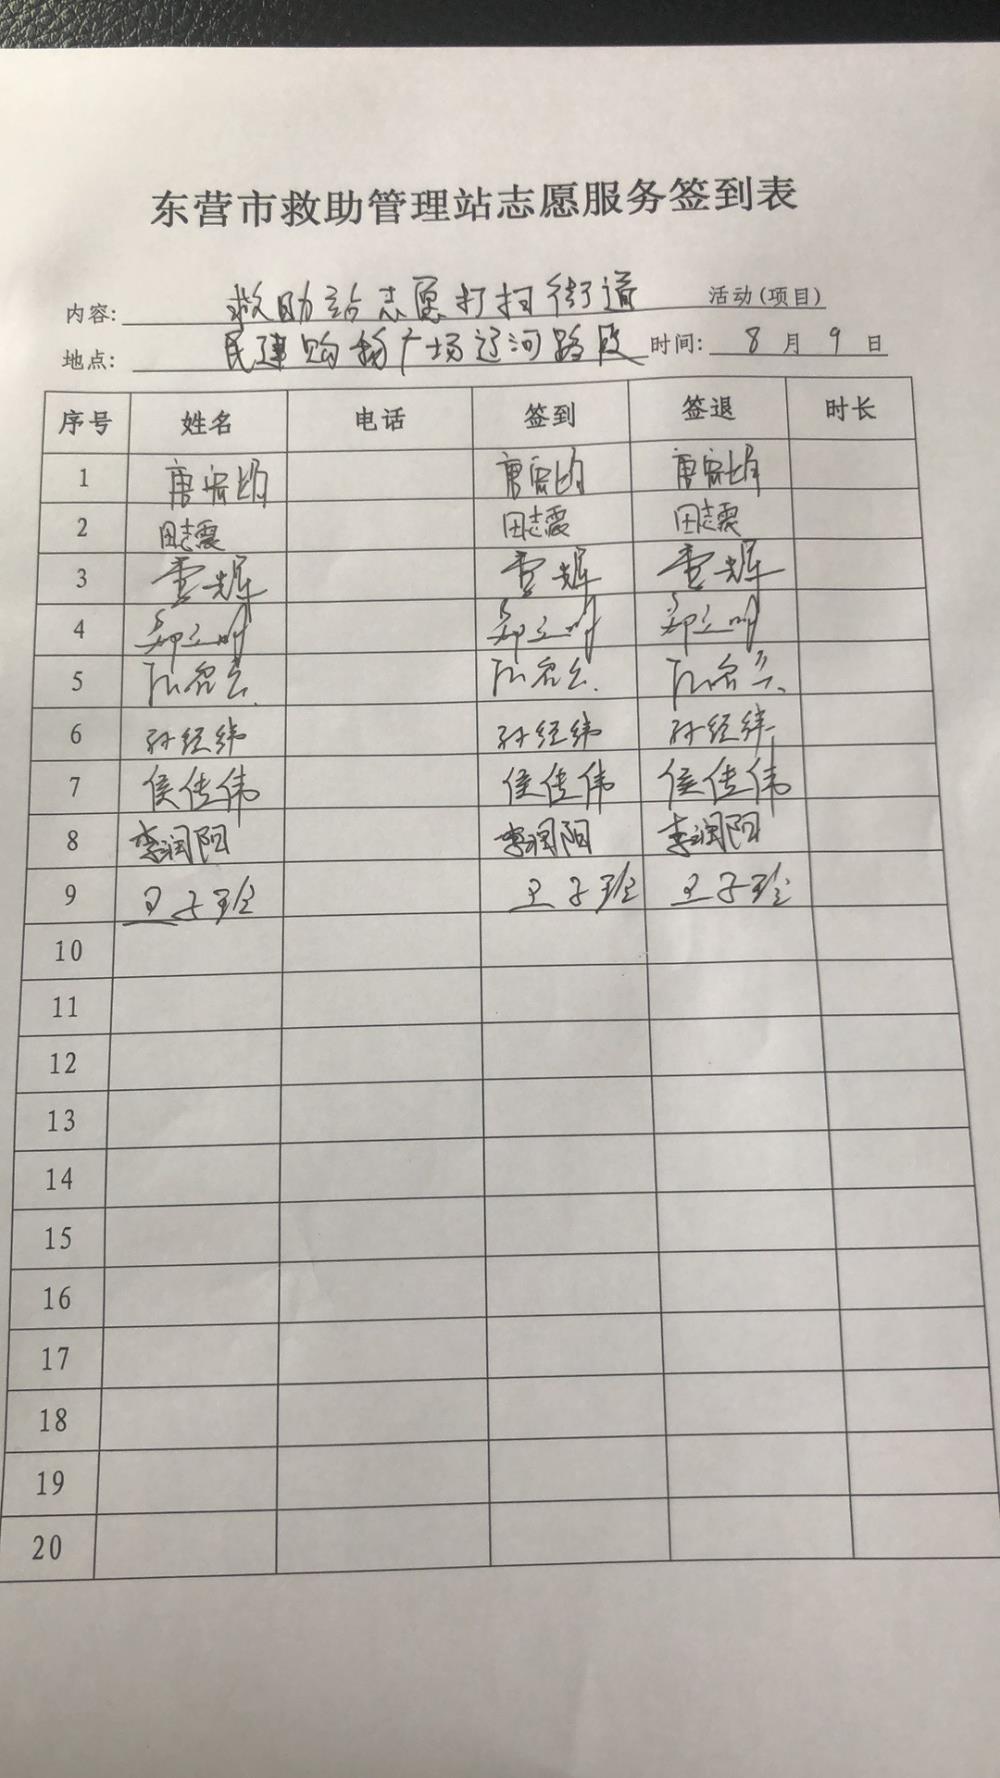 东营市救助管理站志愿服务签到表
内容: 救助站志愿打扫街道 活动(项目)
地点: 民建购物广场辽河路段 时间: 8 月 9 日
序号 姓名 电话 签到 签退 时长
1 唐 唐 唐
2 田志震 田志震 田志震
3
4 郑立明 郑立明 郑立明
5
6 孙经纬 孙经纬 孙经纬
7 侯传伟 侯传伟 侯传伟
8 李润阳 李润阳 李润阳
9 王子 王子 王子
10
11
12
13
14
15
16
17
18
19
20